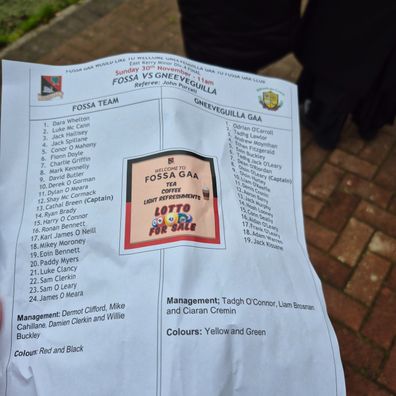 FOSSA GAA WOULD LIKE TO WELCOME GNEEVEGUILLA GAA TO FOSSA GAA CLUB
East Kerry Minor Div 4 FINAL
Sunday 30th November - 11am
FOSSA VS GNEEVEGUILLA
Referee: John Purcell
FOSSA TEAM
1. Dara Whelton
2. Luke Mc Cann
3. Jack Hallisey
4. Jack Spillane
5. Conor O Mahony
6. Fionn Doyle
7. Charlie Griffin
8. Mark Kennelly
9. David Butler
10. Derek O Gorman
11. Dylan O Meara
12. Shay Mc Cormack
13. Cathal Breen (Captain)
14. Ryan Brady
15. Harry O Connor
16. Ronan Bennett
17. Karl James O Neill
18. Mikey Moroney
19. Eoin Bennett
20. Paddy Myers
21. Luke Clancy
22. Sam Clerkin
23. Sam O Leary
24. James O Meara
Management: Dermot Clifford, Mike
Cahillane, Damien Clerkin and Willie
Buckley
Colours: Red and Black
WELCOME TO
FOSSA GAA
TEA
COFFEE
LIGHT REFRESHMENTS
LOTTO
FOR SALE
GNEEVEGUILLA GAA
Adrian O'Carroll
Tadhg Lawlor
Andrew Moynihan
Fitzgerald
Buckley
Jack O'Leary
(Captain)
Frank O'Leary
18. Adam Warren
19. Jack Kissane
Management; Tadgh O'Connor, Liam Brosnan
and Ciaran Cremin
Colours: Yellow and Green